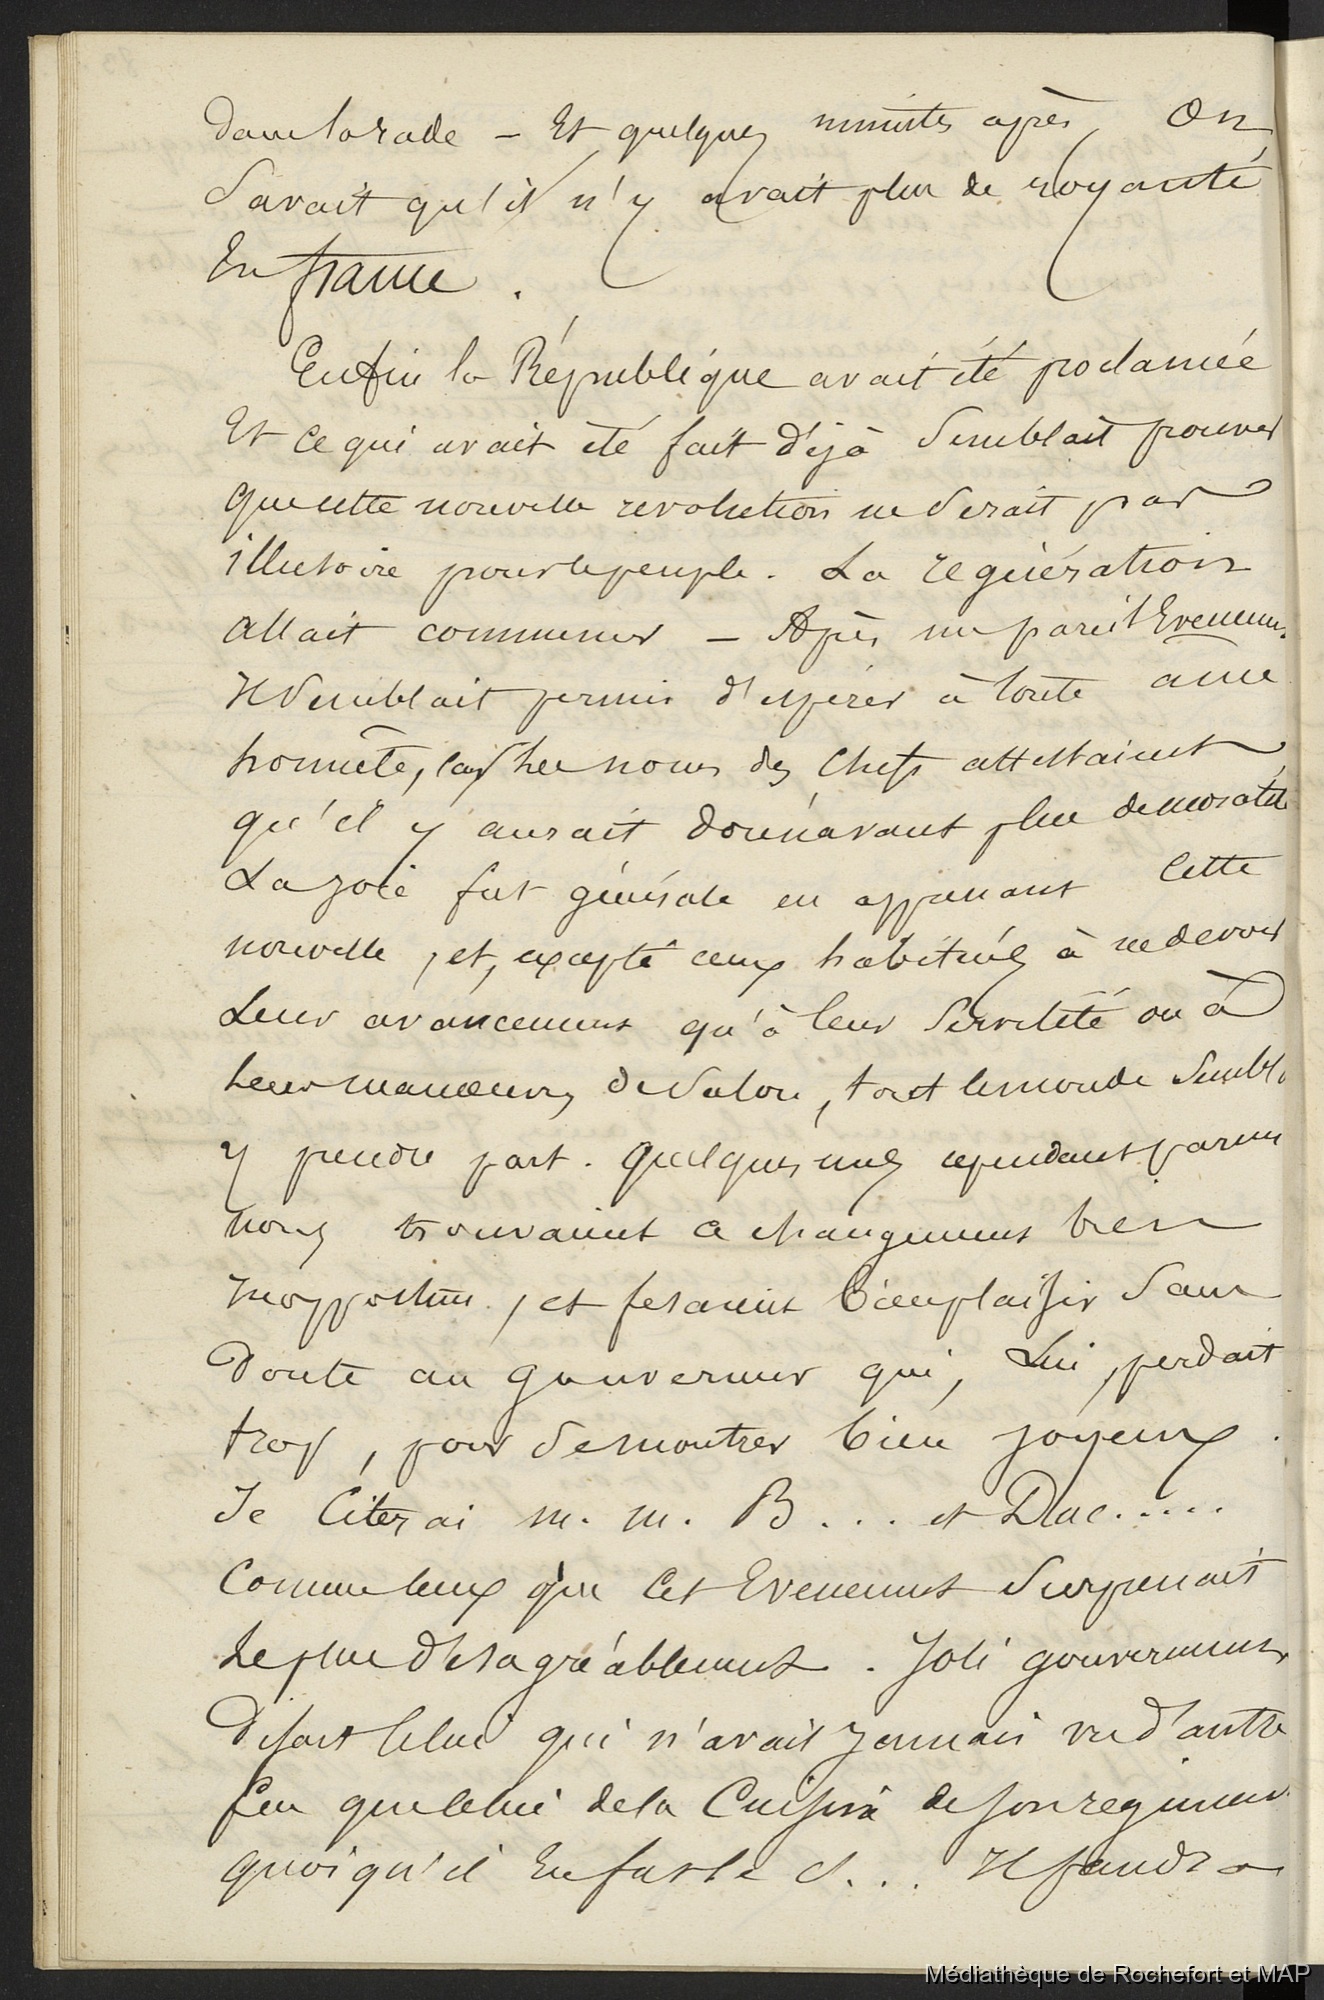 dans la rade – Et quelques minutes après, On
Savait qu'il n'y avait plus de royauté
En france.
Enfin la République avait été proclamée
Et ce qui avait été fait déjà Semblait prouver
que cette nouvelle revolution ne Serait pas
illusoire pour le peuple. La regénération
allait commencer – Après un pareil Evenem.
Il Semblait permis d'espérer à toute ame
honnête, les noms des Chefs attestaient
qu'il y aurait dorénavant plus de moralité
La joie fut générale en apprenant Cette
nouvelle, et, excepté ceux habitués à ne devoir
Leur avancement qu'à leur Servilité ou à
Leurs manœuvres de Salon, tout le monde Sembla
y prendre part. Quelques uns cependant parmi
nous trouvaient ce changement bien
inopportun, et fesaient bien plaisir Sans
Doute au gouverneur qui, Lui, perdait
trop, pour Se montrer bien joyeux.
Je Citerai m. m. B... et Duc.....
Comme ceux que Cet Evenement Surprenait
Le plus désagréablement. Joli gouvernement
Disait Celui qui n'avait jamais vu d'autre
feu que Celui de la Cuisine de son regiment
quoiqu'il En fut le C... Il faudra
Médiathèque de Rochefort et MAP